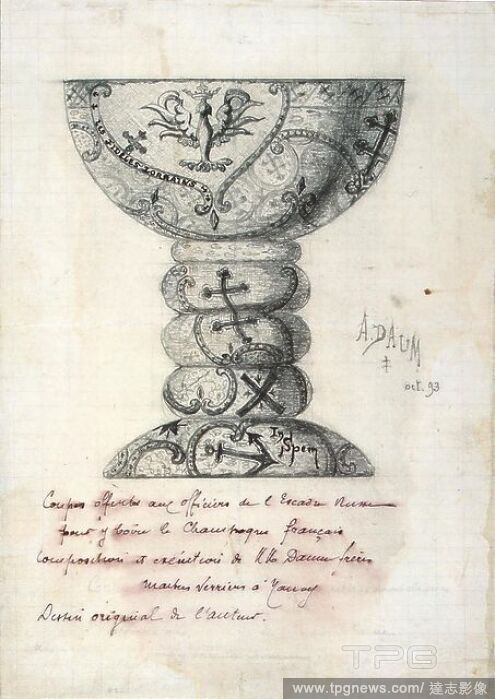 FIDELES · LORRAINS
A. DAUM
‡
oct. 93
In
Spem
Coupes offertes aux officiers de l'Escadre Russe
pour y boire le Champagne français
Composition et exécution de MM Daum frères
Maitres Verriers à Nancy
Dessin original de l'auteur.
TPG
www.tpgnews.com/達志影像